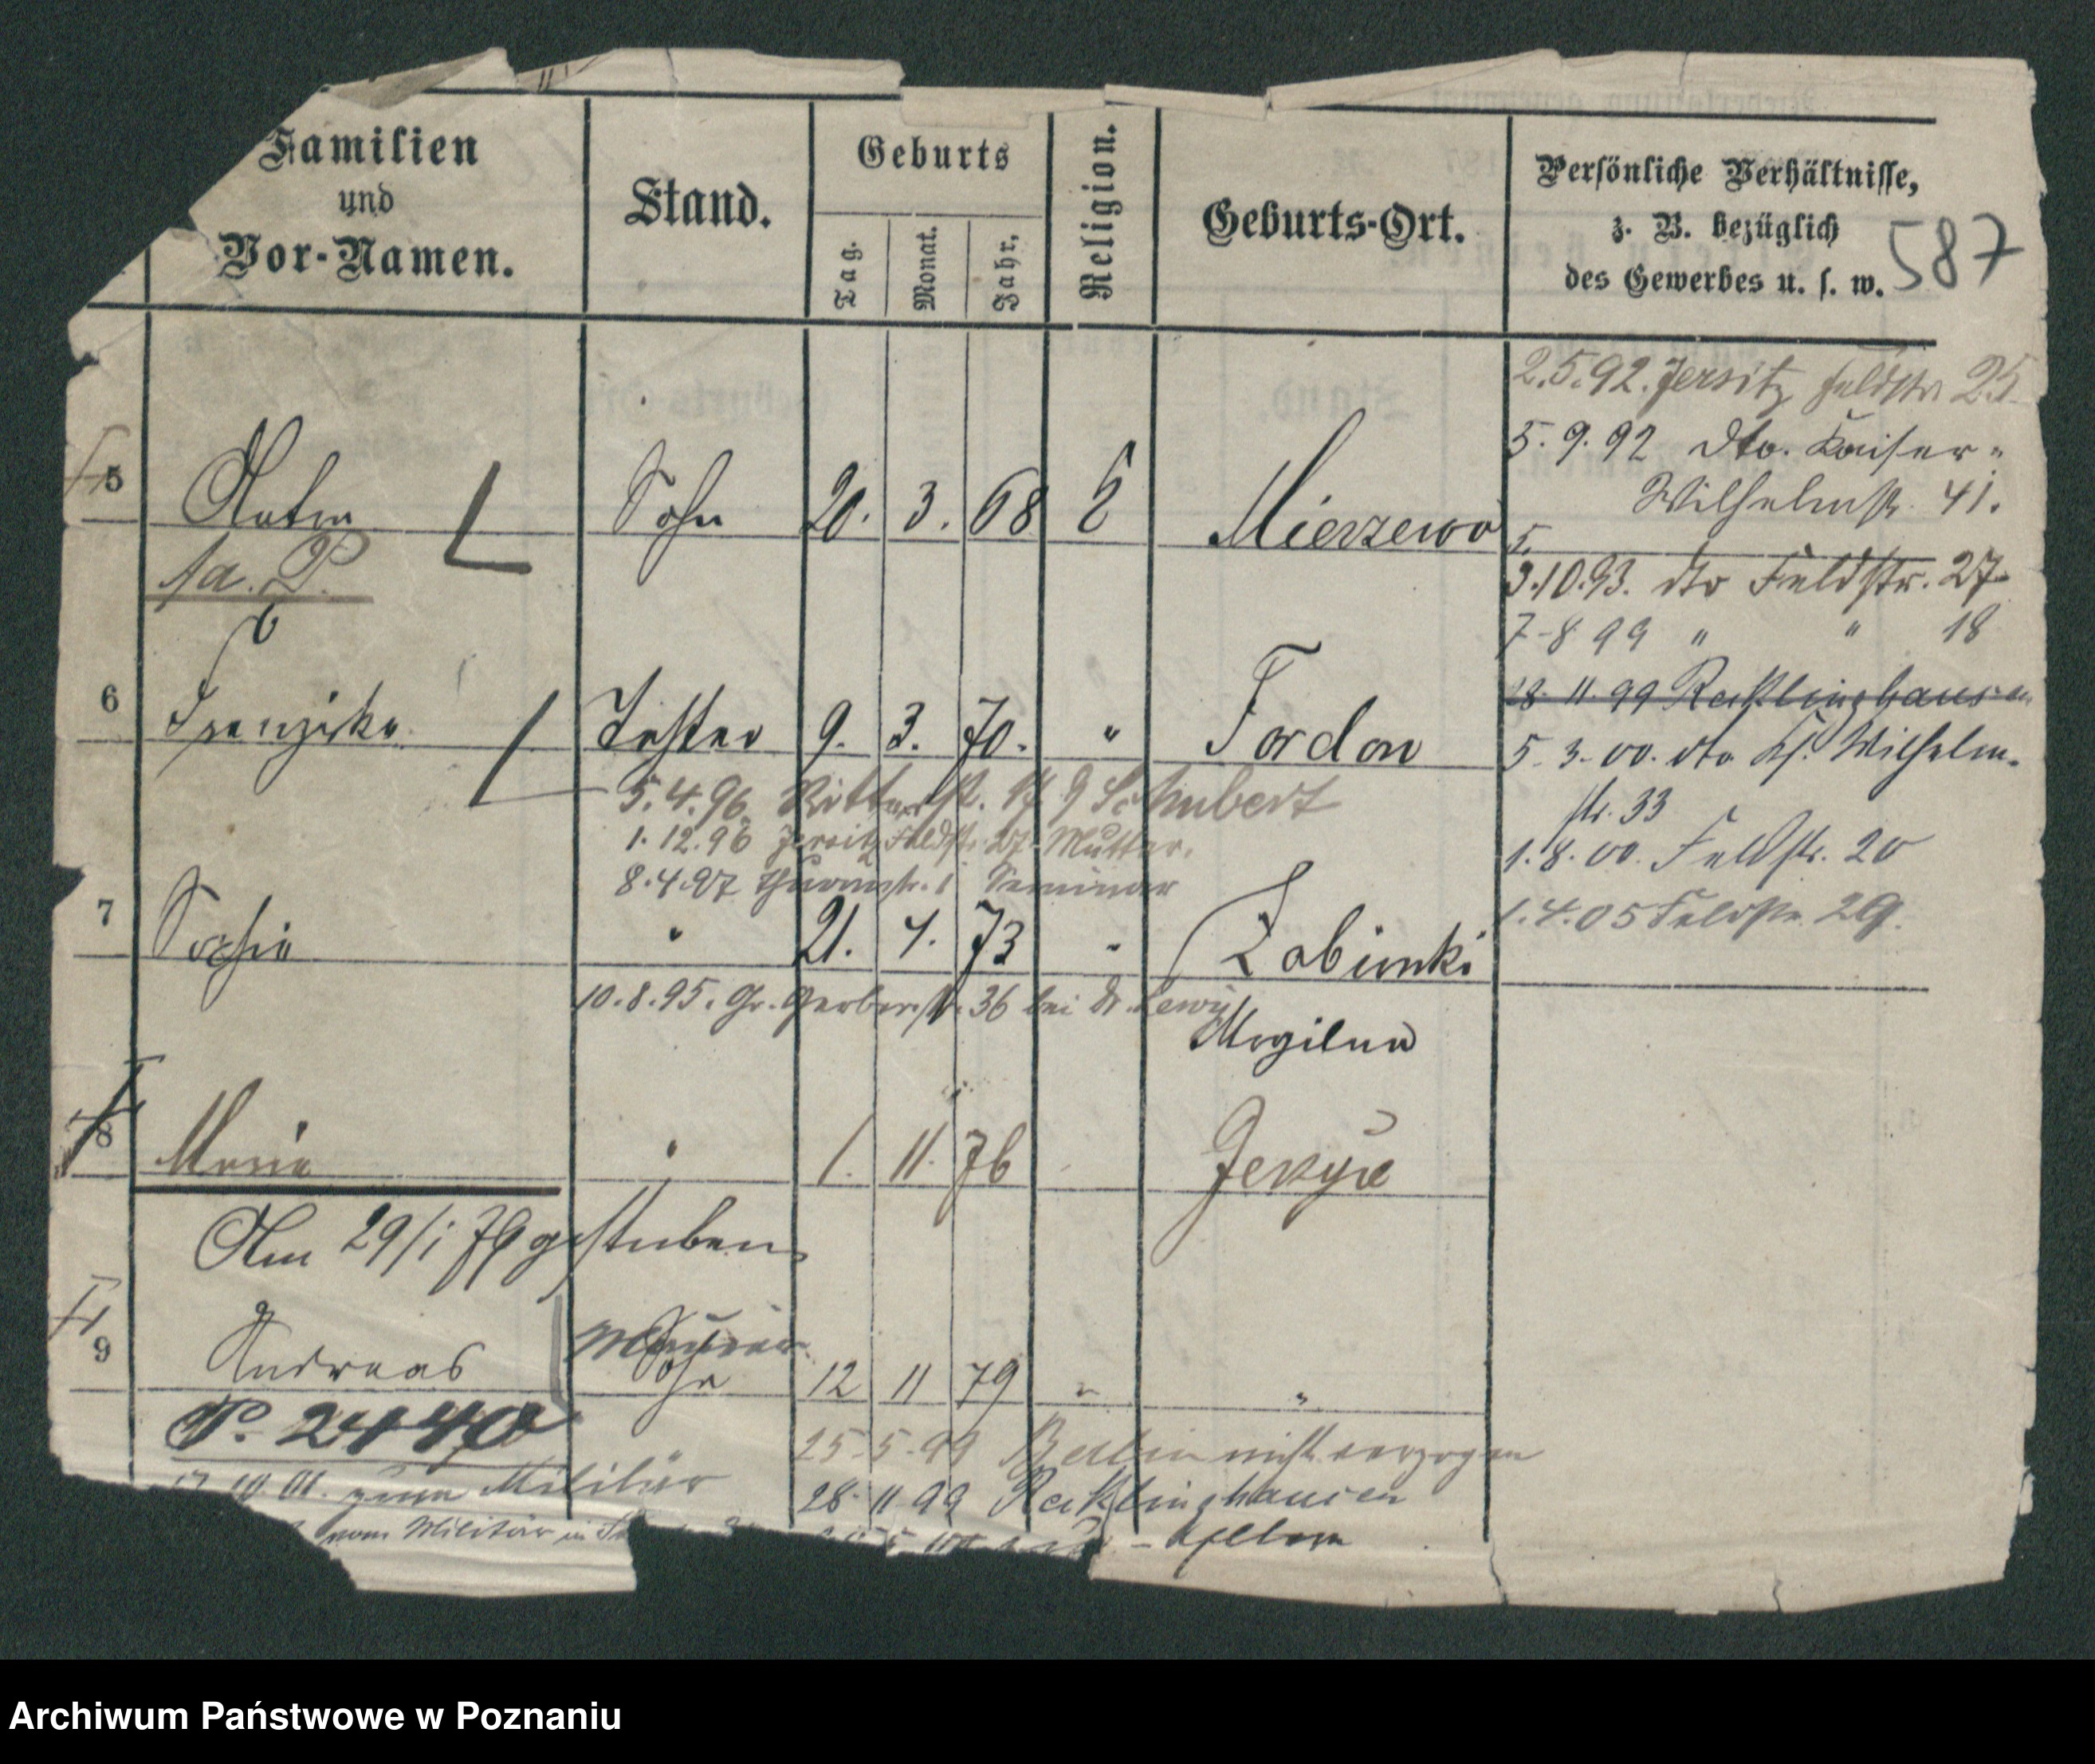 Familien
und
Vor-Namen.
Stand.
Geburts
Tag.
Monat.
Jahr.
Religion.
Geburts-Ort.
Persönliche Verhältnisse,
z. B. bezüglich
des Gewerbes u. s. w.
587
2.5.92. Jersitz Feldstr. 25
5. 9. 92 dto. Kaiser-
Wilhelmstr. 41.
5 Anton Sohn 20. 3. 68 Mierzewo
5.
3.10.93. dto Feldstr. 27
7-8 99 " " 18
28. 11. 99 Recklinghausen
6 Franziska Tochter 9. 3. 70. " Fordon
5. 3. 00. dto Ks. Wilhelm-
str. 33
5.4.96. Ritterstr. Schubert
1. 12. 96 Jersitz Feldstr. 27. Mutter.
1. 8. 00. Feldstr. 20
8.4.97 Thurmstr. 1 Seminar
1.4.05 Feldstr. 29.
7 Sophie " 21. 4. 73 " Zabimki
10.8.95. Gr. Gerberstr. 36 bei Dr. Lewy
Mogilno
8 Maria " 1. 11. 76 Jerzyce
Am 29/1 79 gestorben
Maurer
9 Andreas Sohn 12 11 79 " "
P. 2440
25-5-99 Berlin nicht verzogen
10 01. zum Militär
28. 11. 99 Recklinghausen
vom Militär in
Archiwum Państwowe w Poznaniu